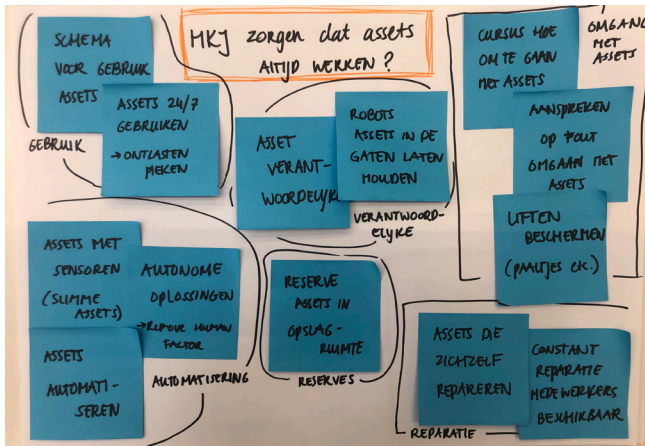 HKJ zorgen dat assets
altijd werken?
SCHEMA
VOOR GEBRUIK
ASSETS
ASSETS 24/7
GEBRUIKEN
→ ONTLASTEN
PIEKEN
GEBRUIK
ASSET
VERANT-
WOORDELIJKE
ROBOTS
ASSETS IN DE
GATEN LATEN
HOUDEN
VERANTWOORD-
ELIJKE
OMGANG
MET
ASSETS
CURSUS HOE
OM TE GAAN
MET ASSETS
AANSPREKEN
OP FOUT
OMGAAN MET
ASSETS
LIFTEN
BESCHERMEN
(PAALTJES etc.)
ASSETS MET
SENSOREN
(SLIMME
ASSETS)
AUTONOME
OPLOSSINGEN
→ REMOVE HUMAN
FACTOR
ASSETS
AUTOMATI-
SEREN
AUTOMATISERING
RESERVE
ASSETS IN
OPSLAG-
RUIMTE
RESERVES
ASSETS DIE
ZICHZELF
REPAREREN
CONSTANT
REPARATIE
MEDEWERKERS
BESCHIKBAAR
REPARATIE